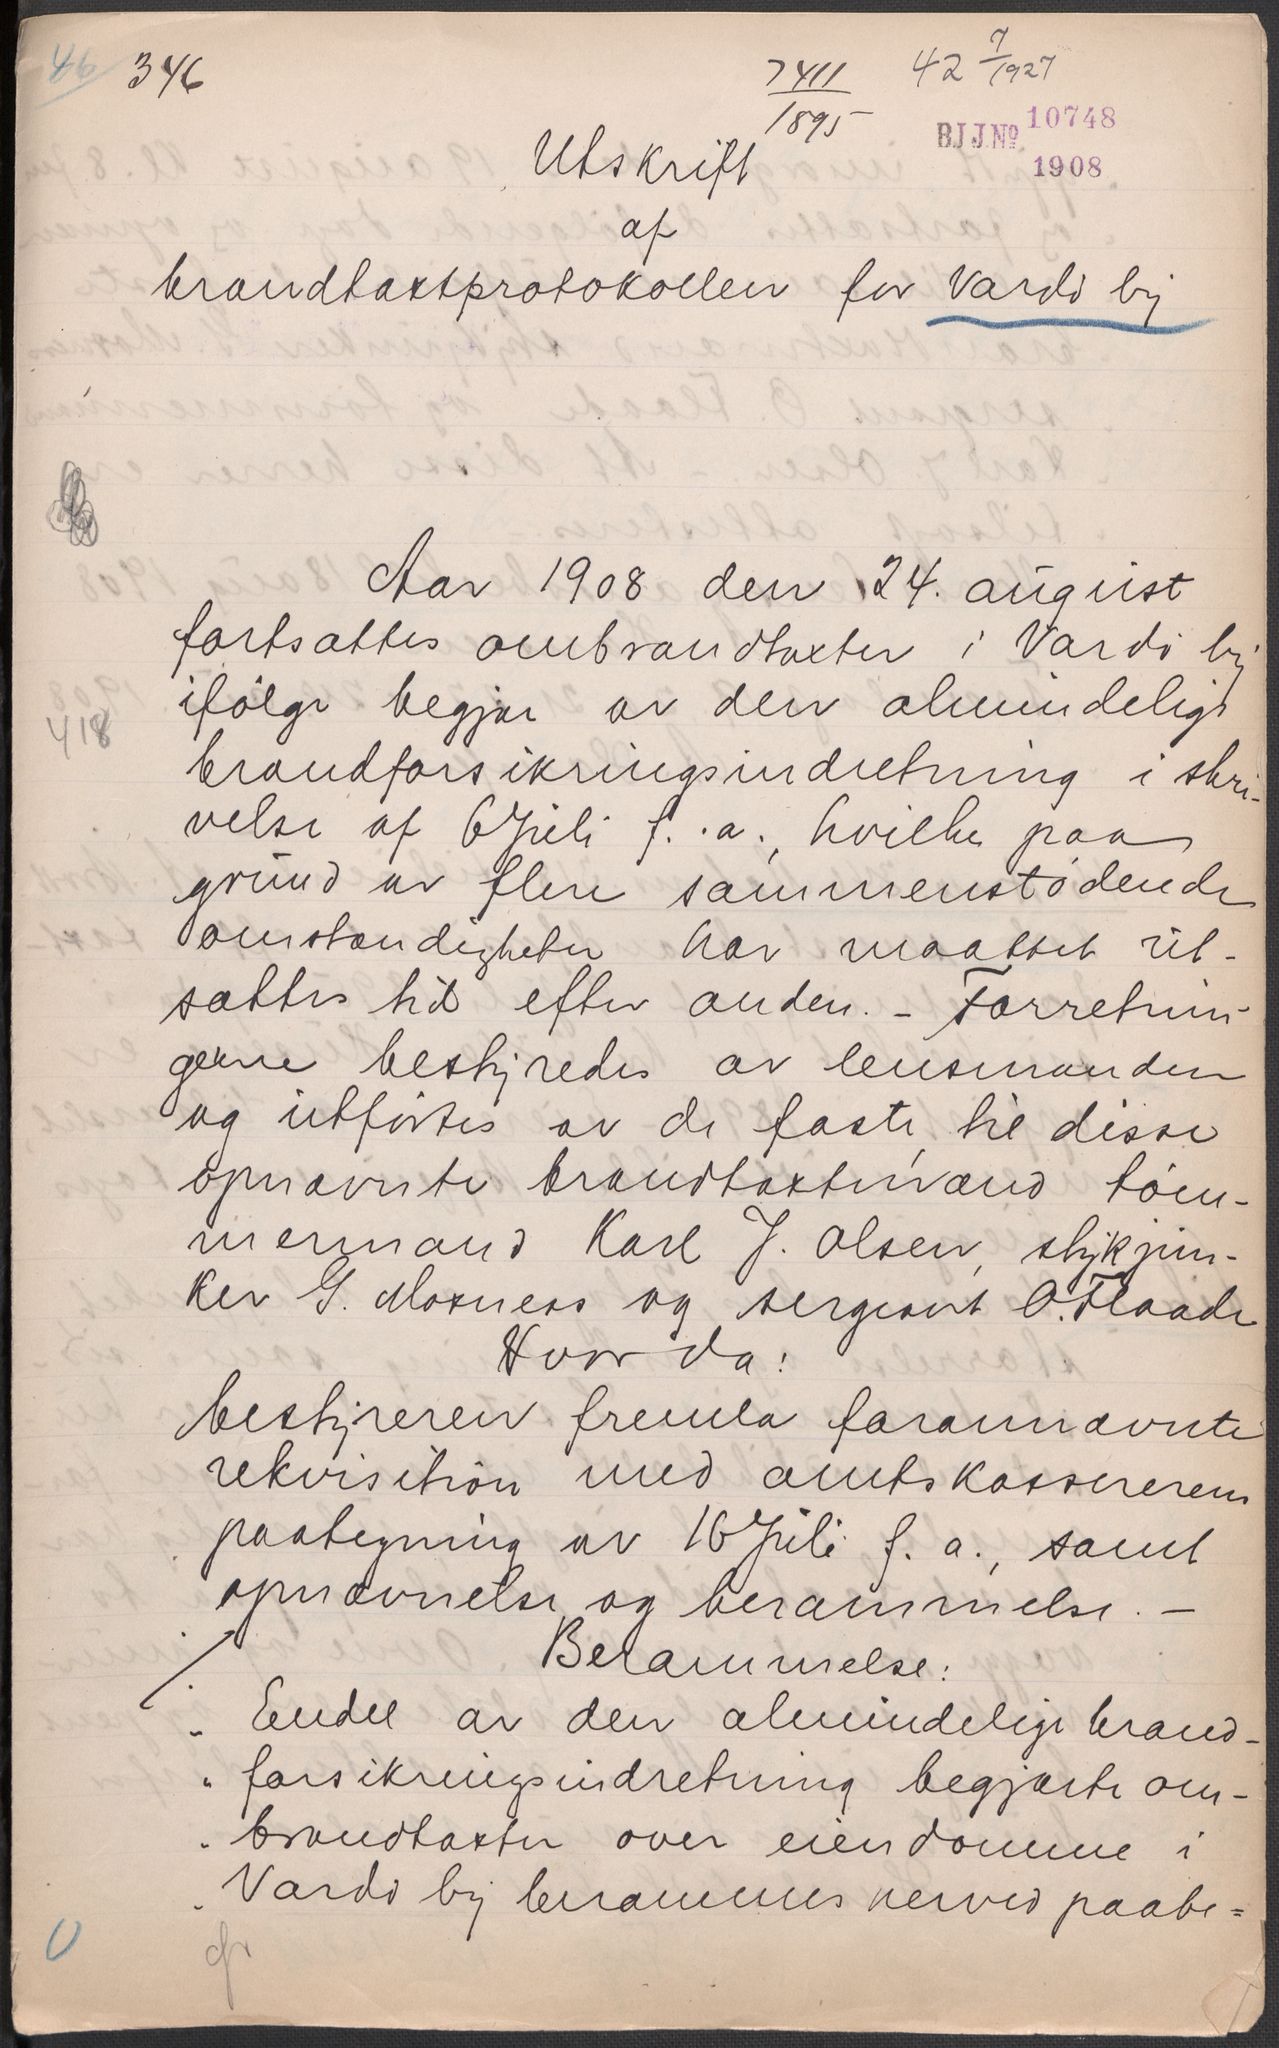 46 346
7411
1895
42 7/1927
BJ J.Nº 10748
1908
Utskrift
af
brandtaxtprotokollen for Vardö by
Aar 1908 den 24. august
fortsattes ombrandtaxter i Vardö by
ifölge begjær av den almindelige
418
brandforsikringsindretning i skri-
velse af 6 Juli f. a., hvilke paa
grund av flere sammenstödende
omstændigheter har maattet ut-
sættes tid efter anden. - Forretnin-
gerne bestyredes av lensmanden
og utförtes av de faste, til disse
opnævnte brandtaxtmænd töm-
mermand Karl J. Olsen, stykjun-
ker G. Moxness og sergeant O. Flaade
Hvor da:
bestyreren fremla forannævnte
rekvisition med amtskassererens
paategning av 16 Juli f. a., samt
opnævnelse og berammelse. -
Berammelse:
" Endel av den almindelige brand-
" forsikringsindretning begjærte om-
" brandtaxter over eiendomme i
" Vardö by berammes herved paabe=